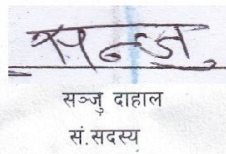 सन्जु
सञ्जु दाहाल
सं.सदस्य